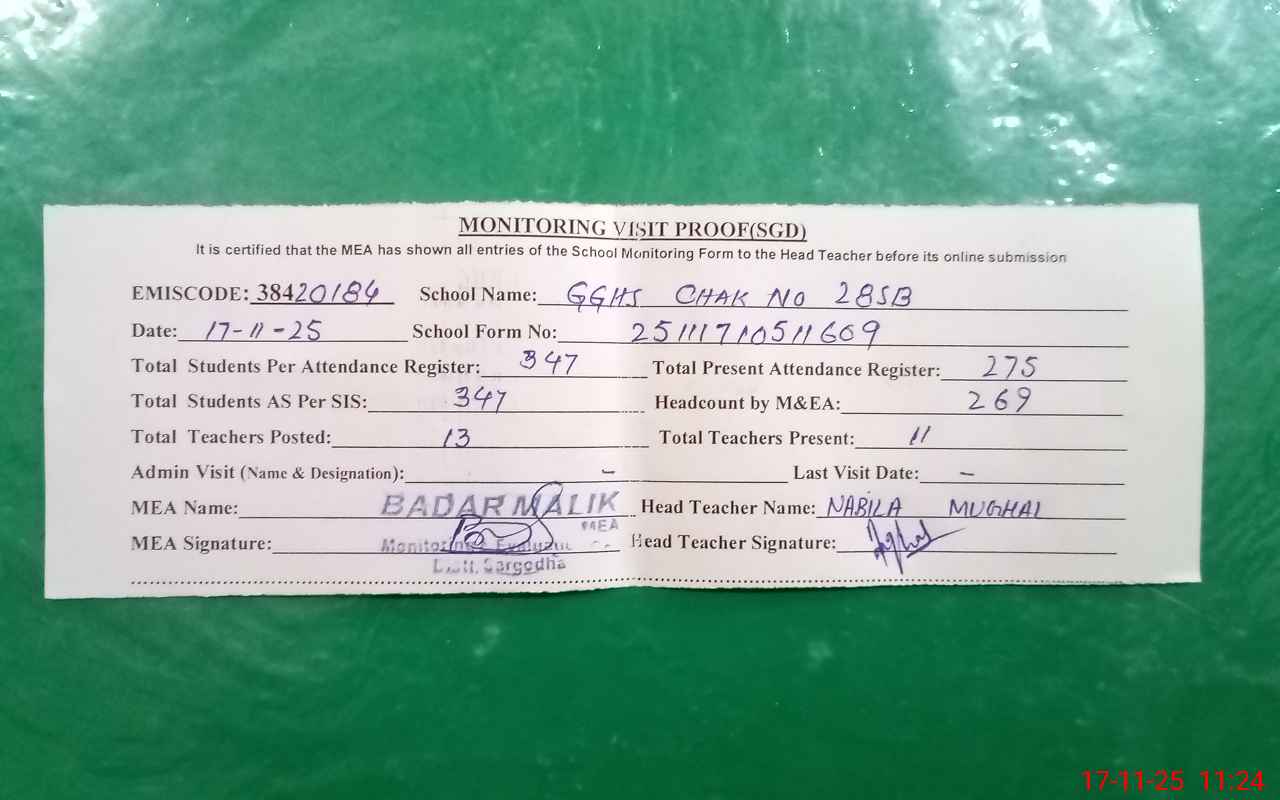 MONITORING VISIT PROOF(SGD)
It is certified that the MEA has shown all entries of the School Monitoring Form to the Head Teacher before its online submission
EMISCODE: 38420184 School Name: GGHS CHAK NO 28SB
Date: 17-11-25 School Form No: 25111710511609
Total Students Per Attendance Register: 347 Total Present Attendance Register: 275
Total Students AS Per SIS: 347 Headcount by M&EA: 269
Total Teachers Posted: 13 Total Teachers Present: 11
Admin Visit (Name & Designation): - Last Visit Date: -
MEA Name: BADAR MALIK Head Teacher Name: NABILA MUGHAL
MEA
MEA Signature: Monitoring Head Teacher Signature:
Distt. Sargodha
17-11-25 11:24